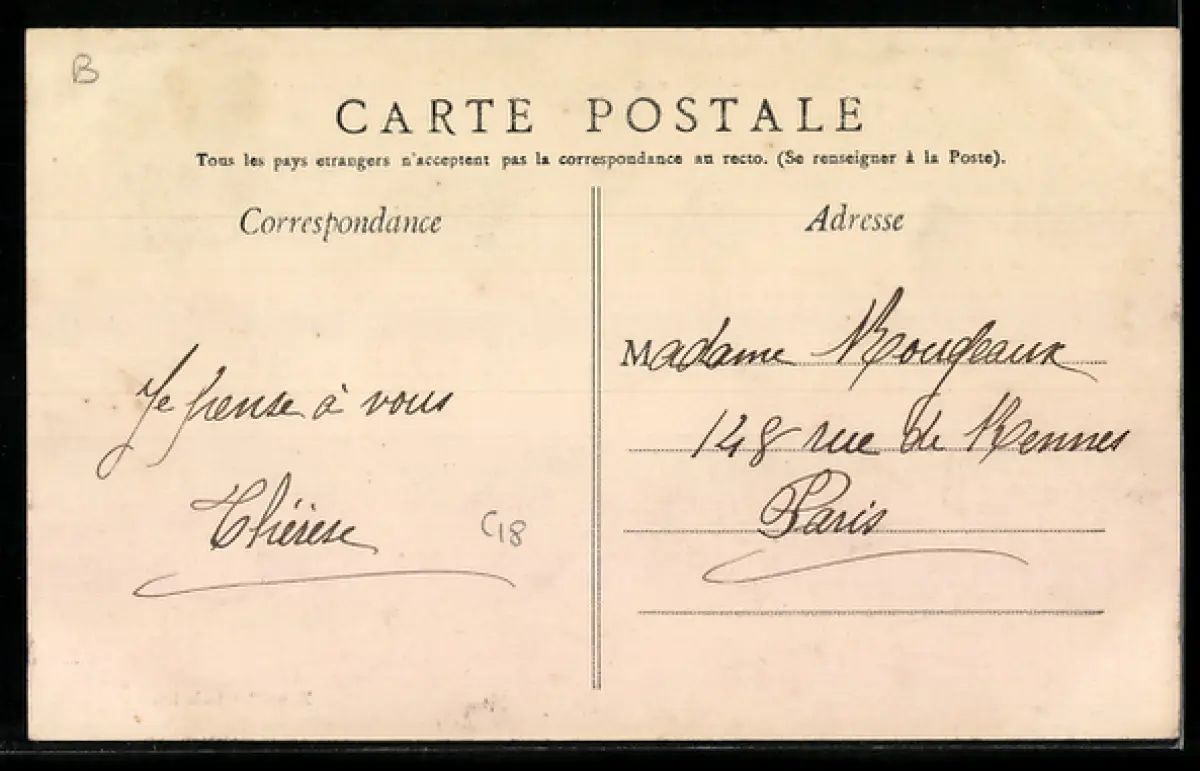 B
CARTE POSTALE
Tous les pays etrangers n'acceptent pas la correspondance au recto. (Se renseigner à la Poste).
Correspondance
Je pense à vous
Thérèse
C18
Adresse
Madame Rougeaux
148 rue de Rennes
Paris